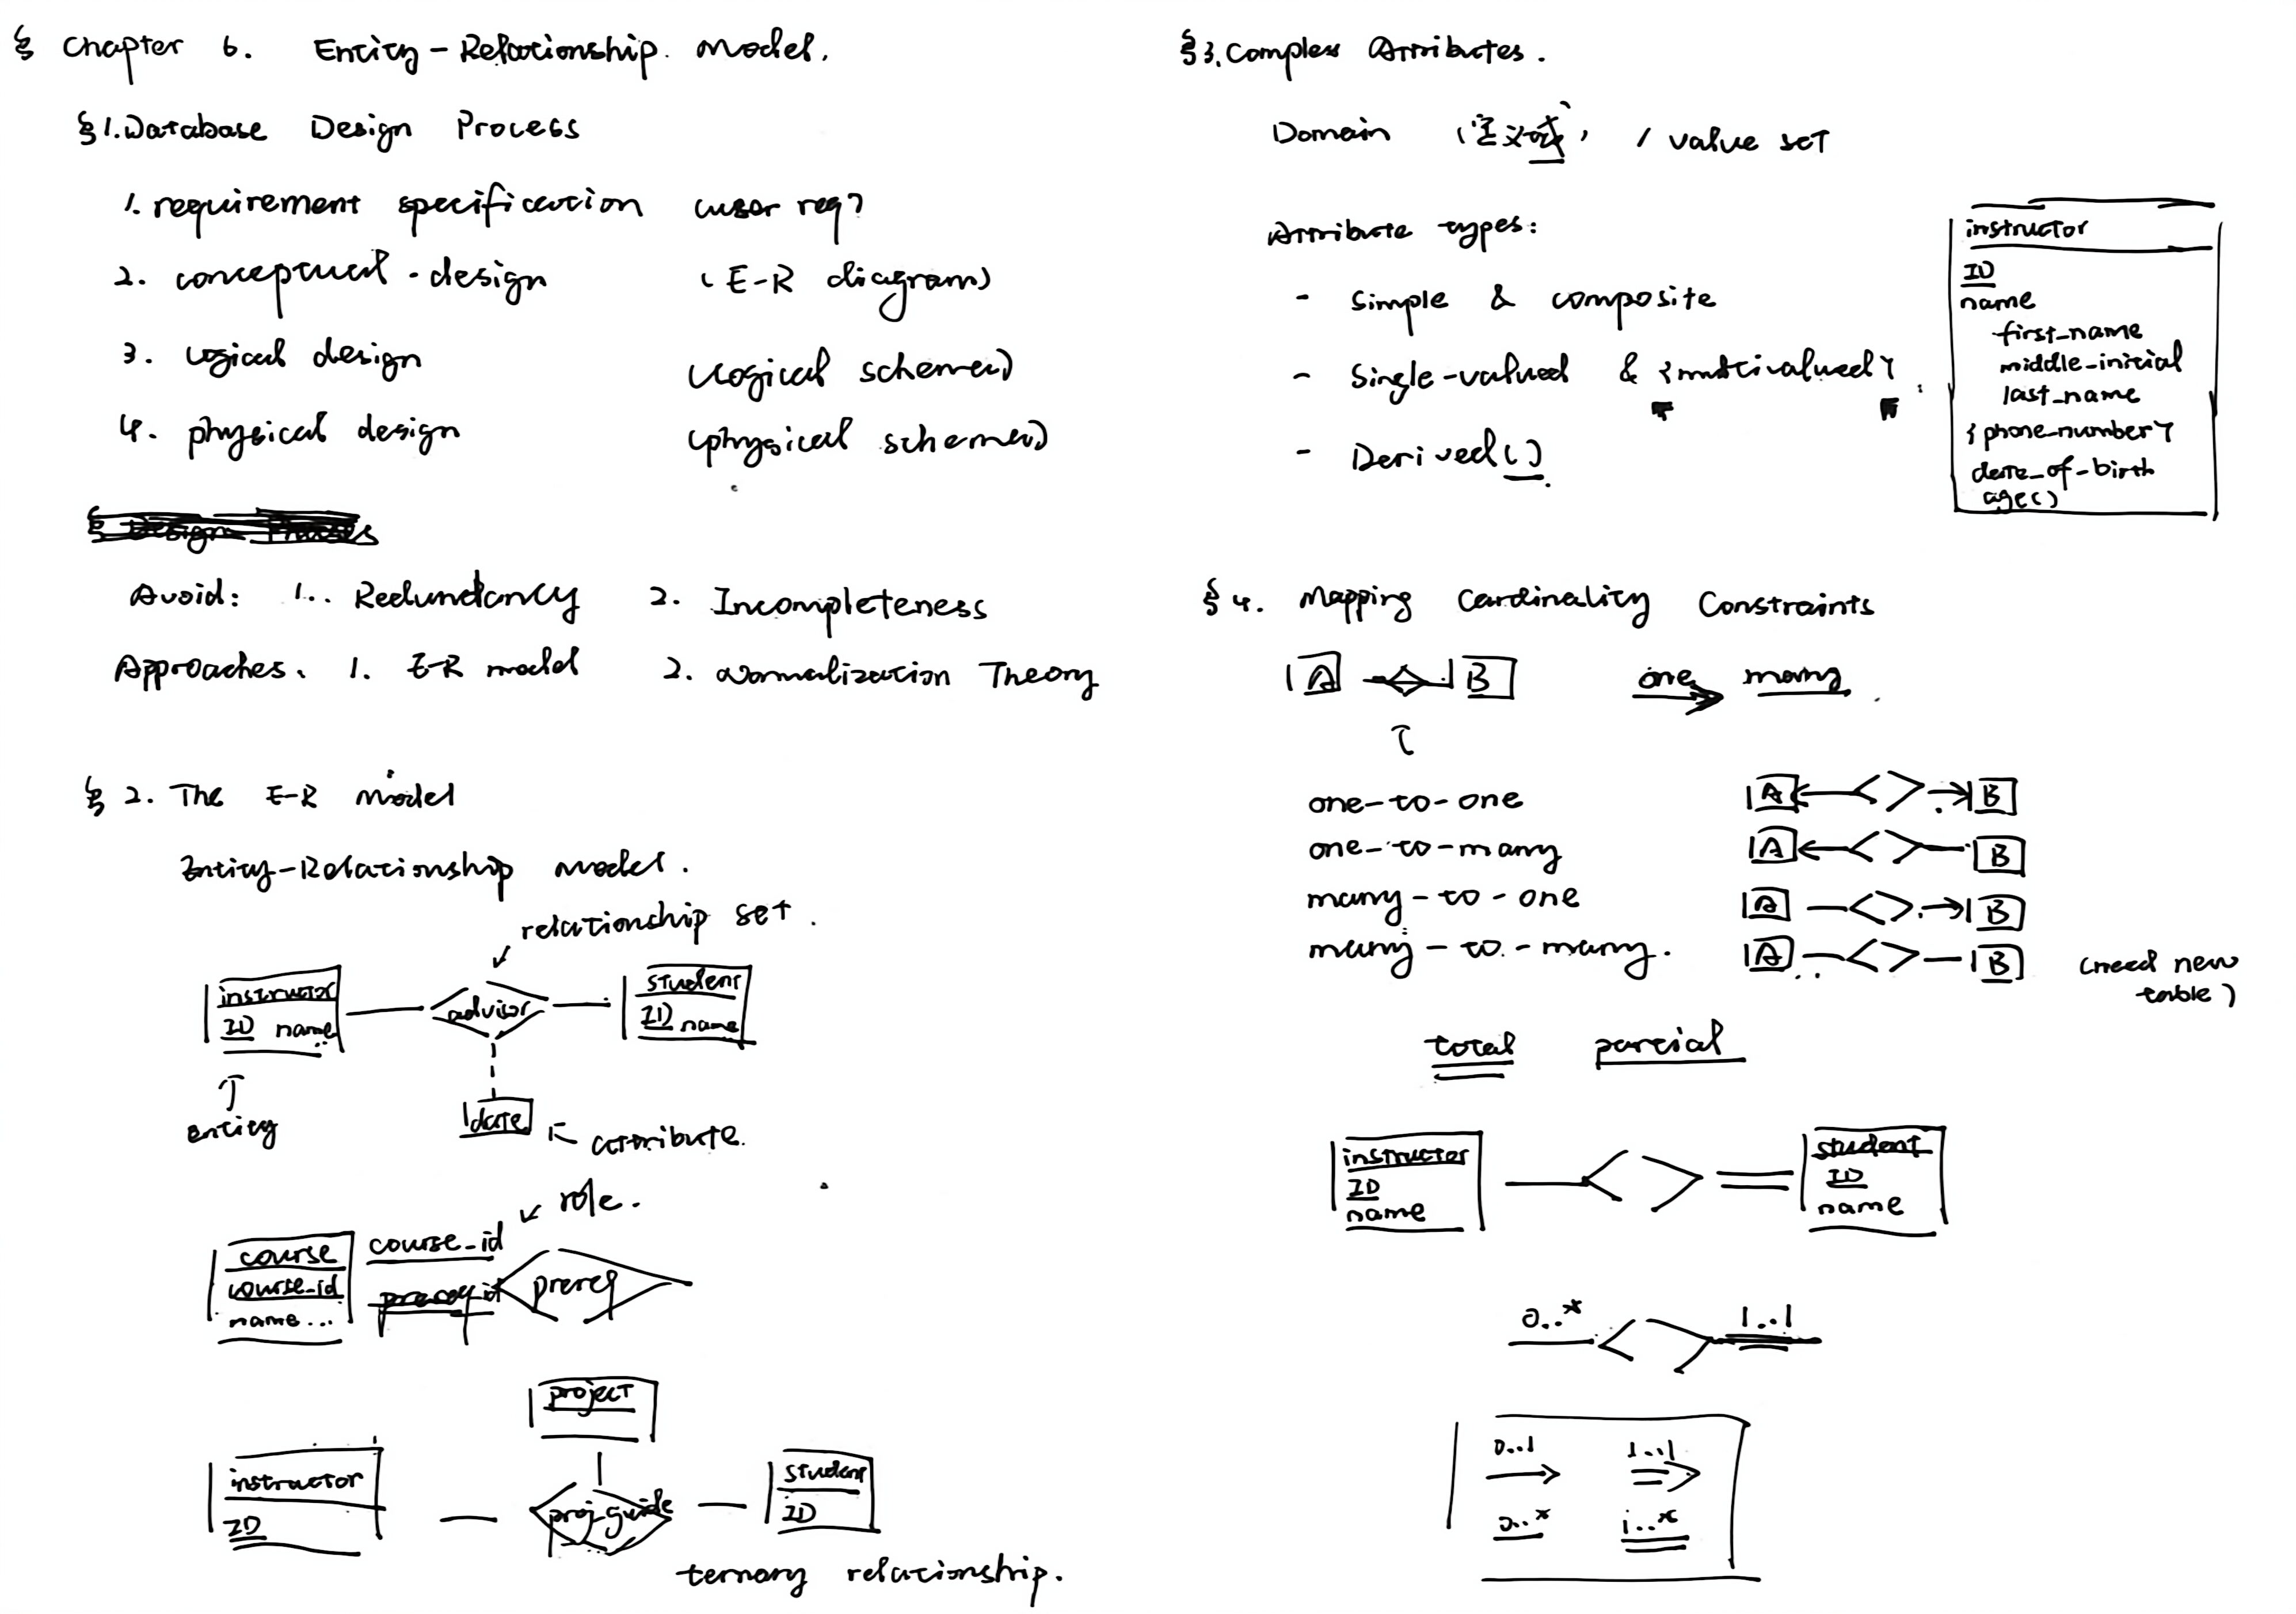 § Chapter 6. Entity-Relationship Model.
§1. Database Design Process
1. requirement specification (user req)
2. conceptual-design (E-R diagram)
3. logical design (logical schema)
4. physical design (physical schema)
§ Design Phases
Avoid: 1. Redundancy 2. Incompleteness
Approaches. 1. E-R model 2. Normalization Theory
§ 2. The E-R model
Entity-Relationship model.
relationship set.
instructor
ID name
advisor
student
ID name
entity
date
attribute.
role.
course
course_id
name...
course_id
prereq_id
prereq
project
instructor
ID
proj_guide
student
ID
ternary relationship.
§3. Complex Attributes.
Domain (定义域) / value set
Attribute types:
- Simple & composite
- Single-valued & {multivalued}
- Derived()
instructor
ID
name
first_name
middle_initial
last_name
{phone_number}
date_of_birth
age()
§ 4. Mapping Cardinality Constraints
A B one many
one-to-one A B
one-to-many A B
many-to-one A B
many-to-many. A B (need new
table)
total partial
instructor
ID
name
student
ID
name
0..* 1..1
0..1 1..1
0..* 1..*